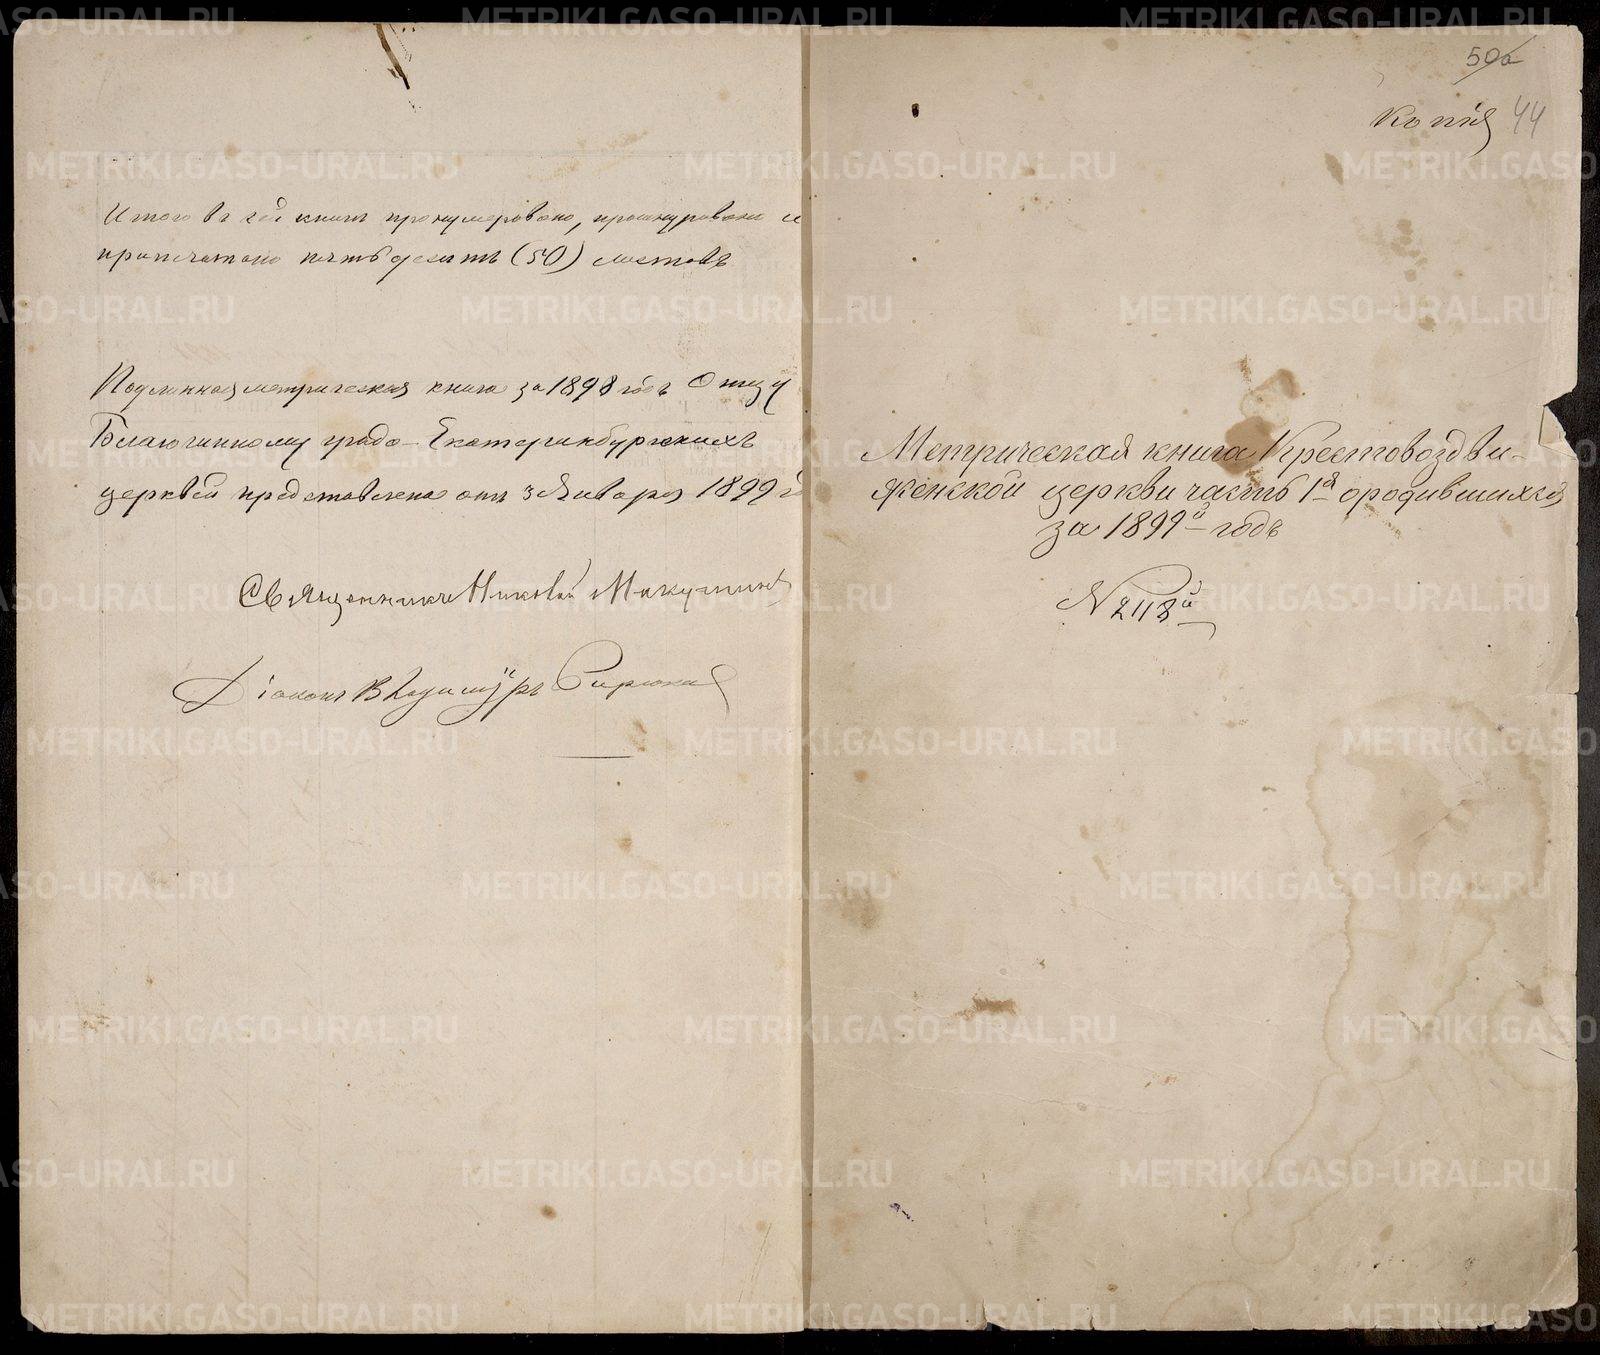 Итого въ сей книге пронумеровано, прошнуровано и
припечатано пятьдесятъ (50) листовъ
Подлинная метрическая книга за 1898 годъ Отцу
Благочинному градо-Екатеринбургскихъ
церквей представлена отъ 3 Января 1899 г
Священникъ Николай Мокушинъ
Діаконъ Владимиръ
50а
Копія 44
Метрическая книга Крестовоздви-
женской церкви часть 1я о родившихся
за 1899й годъ
№ 2118й
METRIKI.GASO-URAL.RU